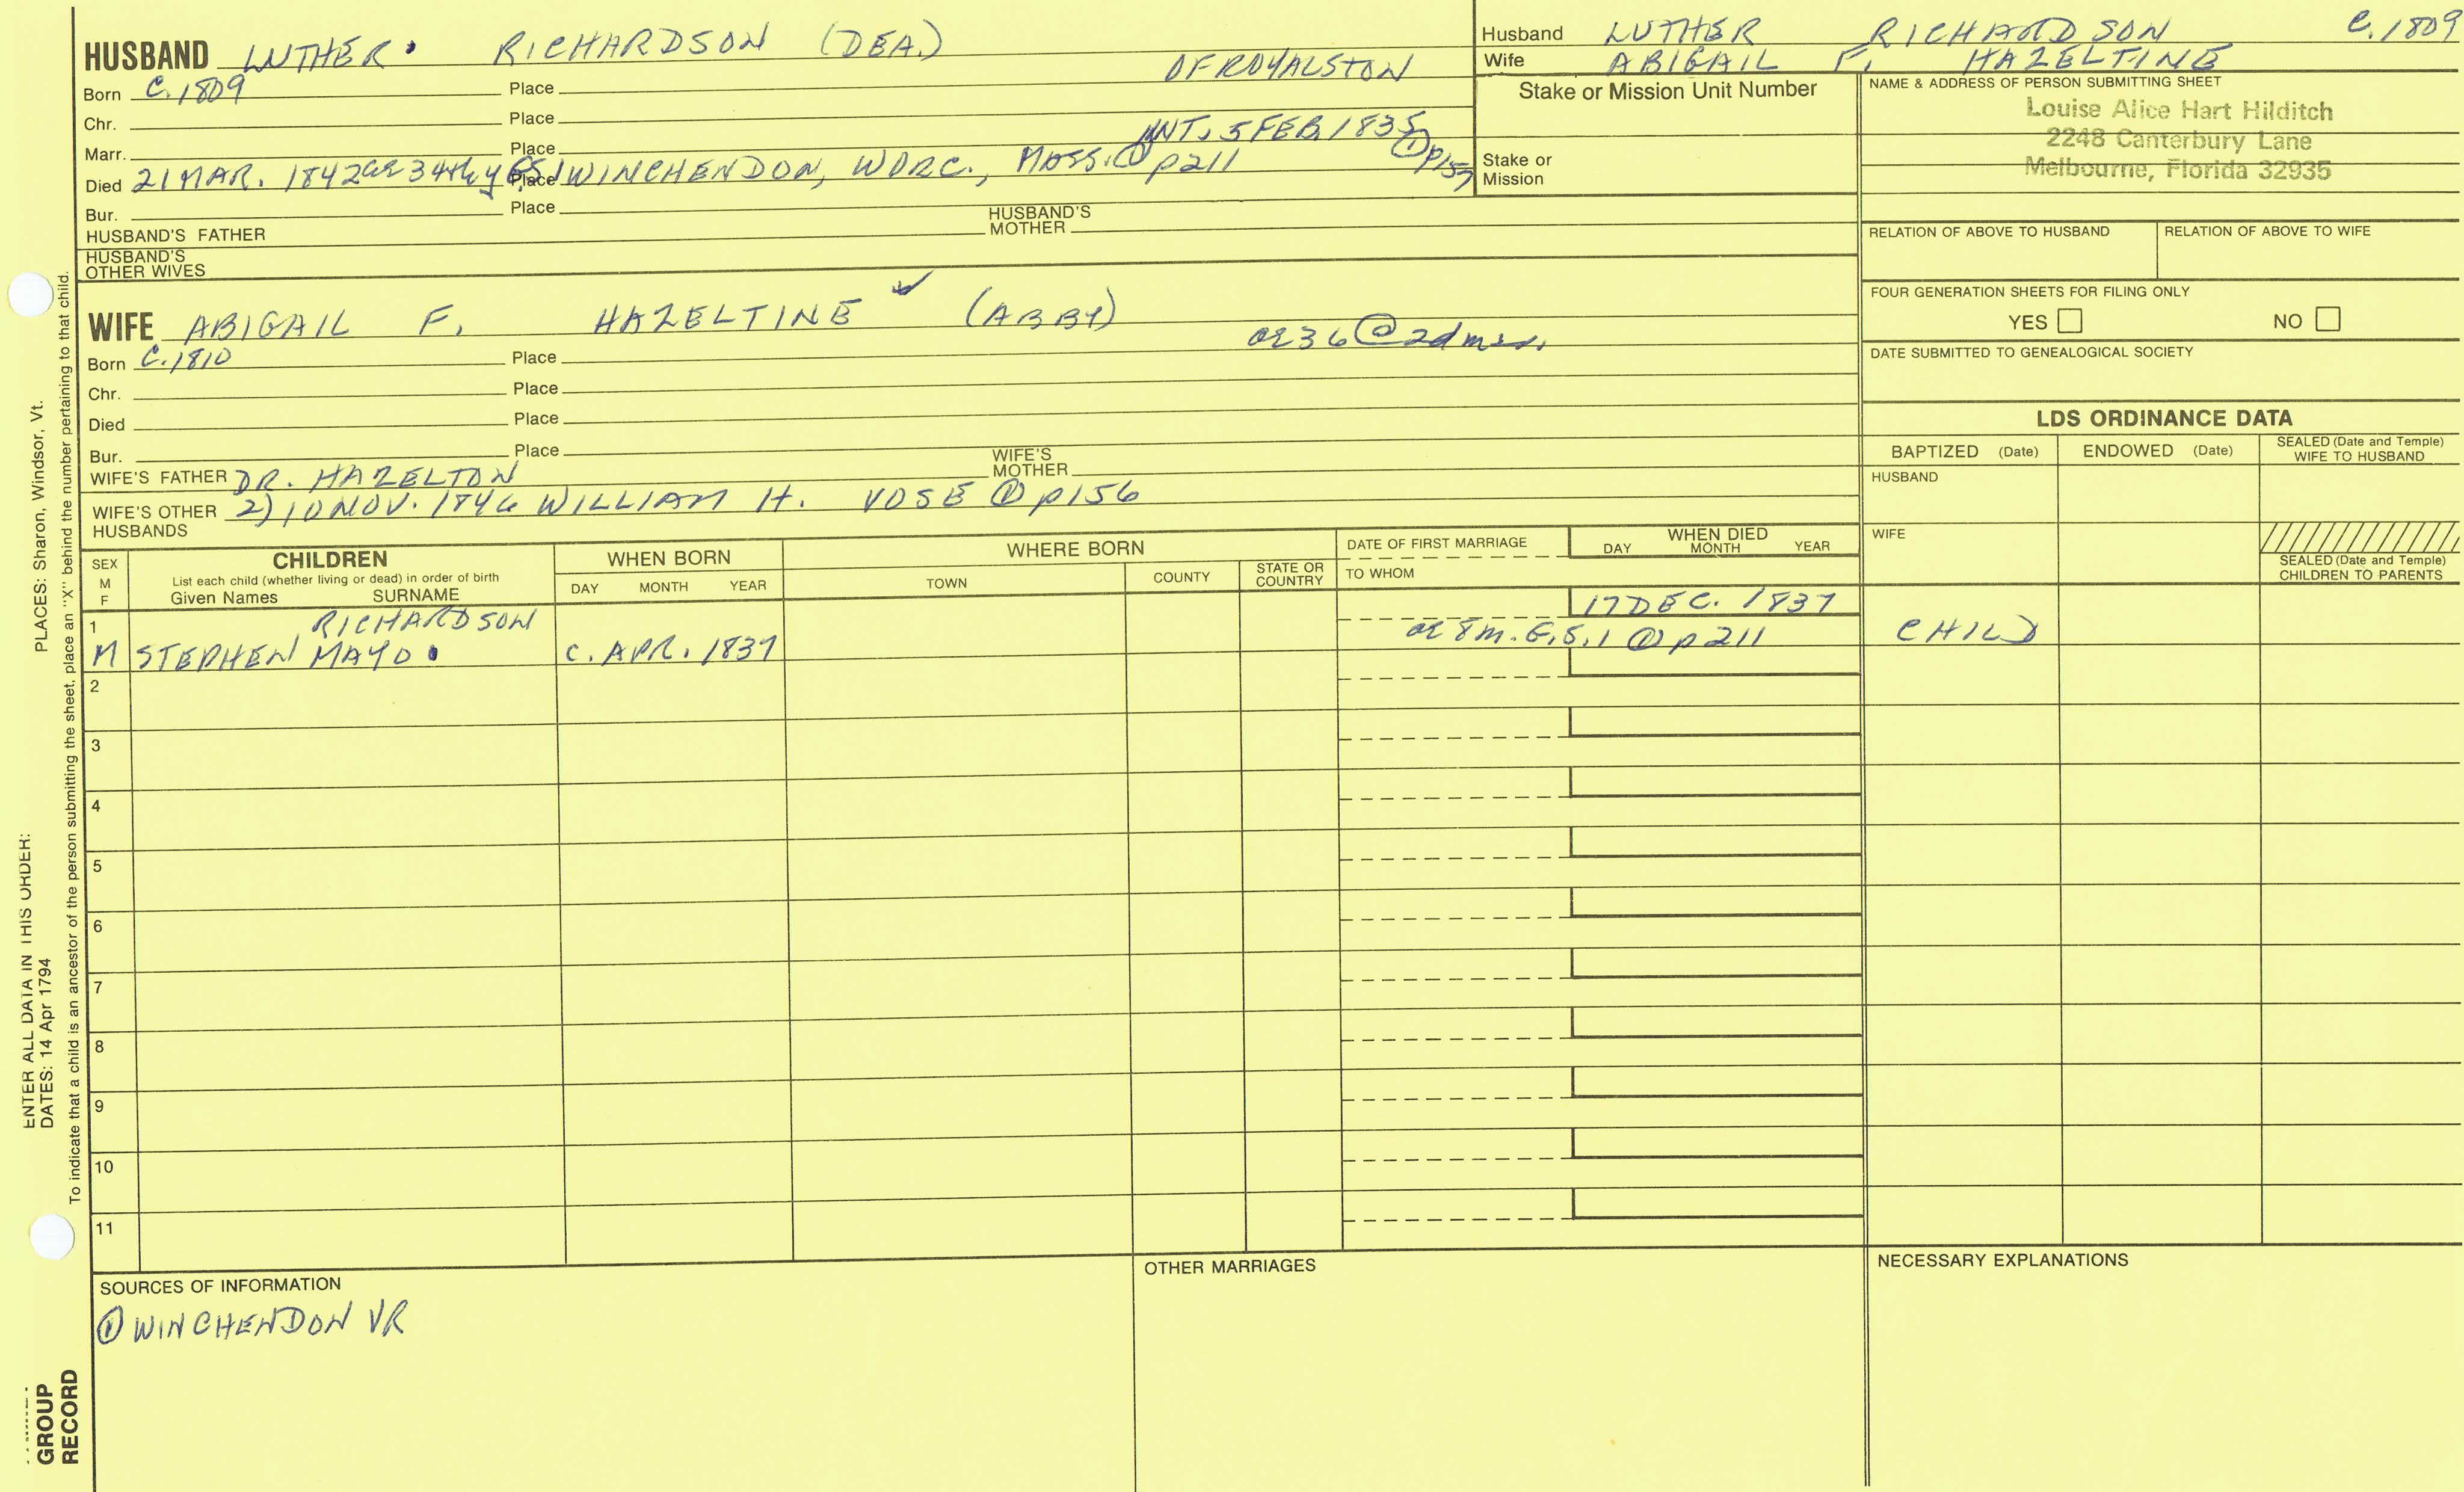 HUSBAND LUTHER. RICHARDSON (DEA.) OF ROYALSTON
Born C. 1809 Place
Chr. Place
Marr. Place INT. 5 FEB. 1835 ① p157
Died 21 MAR. 1842 ae 34th y GS1 Place WINCHENDON, WORC., MASS. ① p211
Bur. Place
HUSBAND'S FATHER HUSBAND'S MOTHER
HUSBAND'S OTHER WIVES
WIFE ABIGAIL F. HAZELTINE ✓ (ABBY)
Born C. 1810 Place ae 36 @ 2d
Chr. Place
Died Place
Bur. Place
WIFE'S FATHER DR. HAZELTON WIFE'S MOTHER
WIFE'S OTHER HUSBANDS 2) 10 NOV. 1846 WILLIAM H. VOSE ① p156
Husband LUTHER RICHARDSON C. 1809
Wife ABIGAIL F. HAZELTINE
Stake or Mission Unit Number
Stake or Mission
NAME & ADDRESS OF PERSON SUBMITTING SHEET
Louise Alice Hart Hilditch
2248 Canterbury Lane
Melbourne, Florida 32935
RELATION OF ABOVE TO HUSBAND RELATION OF ABOVE TO WIFE
FOUR GENERATION SHEETS FOR FILING ONLY
YES NO
DATE SUBMITTED TO GENEALOGICAL SOCIETY
LDS ORDINANCE DATA
BAPTIZED (Date) ENDOWED (Date) SEALED (Date and Temple) WIFE TO HUSBAND
HUSBAND
WIFE
SEALED (Date and Temple) CHILDREN TO PARENTS
SEX M F
CHILDREN
List each child (whether living or dead) in order of birth
Given Names SURNAME
WHEN BORN
DAY MONTH YEAR
WHERE BORN
TOWN COUNTY STATE OR COUNTRY
DATE OF FIRST MARRIAGE
TO WHOM
WHEN DIED
DAY MONTH YEAR
1 RICHARDSON 17 DEC. 1837
M STEPHEN MAYO. C. APR. 1837 ae 8 m. G.S.1 ① p 211 CHILD
2
3
4
5
6
7
8
9
10
11
SOURCES OF INFORMATION
① WINCHENDON VR
OTHER MARRIAGES
NECESSARY EXPLANATIONS
GROUP
RECORD
ENTER ALL DATA IN THIS ORDER:
DATES: 14 Apr 1794 PLACES: Sharon, Windsor, Vt.
To indicate that a child is an ancestor of the person submitting the sheet, place an "X" behind the number pertaining to that child.